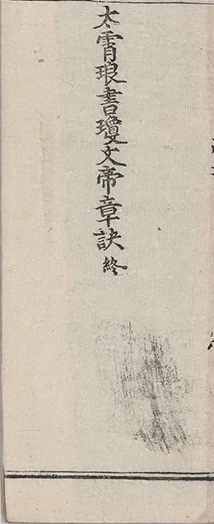 太霄琅書瓊文帝章訣終